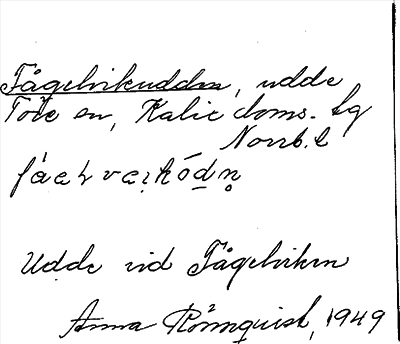 Fågelvikudden, udde
Töre sn, Kalix doms. tg
Norrb. l
Udde vid Fågelviken
Anna Rönnquist, 1949